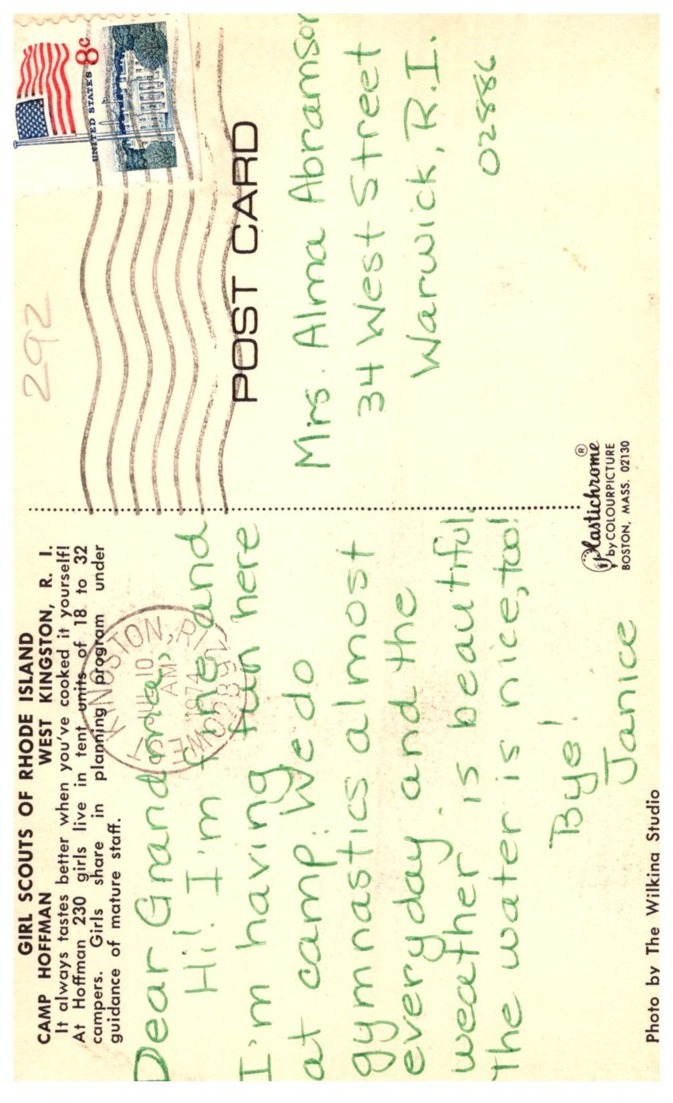 GIRL SCOUTS OF RHODE ISLAND
CAMP HOFFMAN WEST KINGSTON, R. I.
It always tastes better when you've cooked it yourself!
At Hoffman 230 girls live in tent units of 18 to 32
campers. Girls share in planning program under
guidance of mature staff.
Dear Grandma,
Hi! I'm fine and
I'm having fun here
at camp. We do
gymnastics almost
everyday and the
weather is beautiful.
The water is nice, too!
Bye!
Janice
Photo by The Wilkina Studio
292
UNITED STATES 8c
KINGSTON, RI
JUL 10
AM
1974
POST CARD
Mrs. Alma Abramson
34 West Street
Warwick, R.I.
02886
Plastichrome ®
by COLOURPICTURE
BOSTON, MASS. 02130